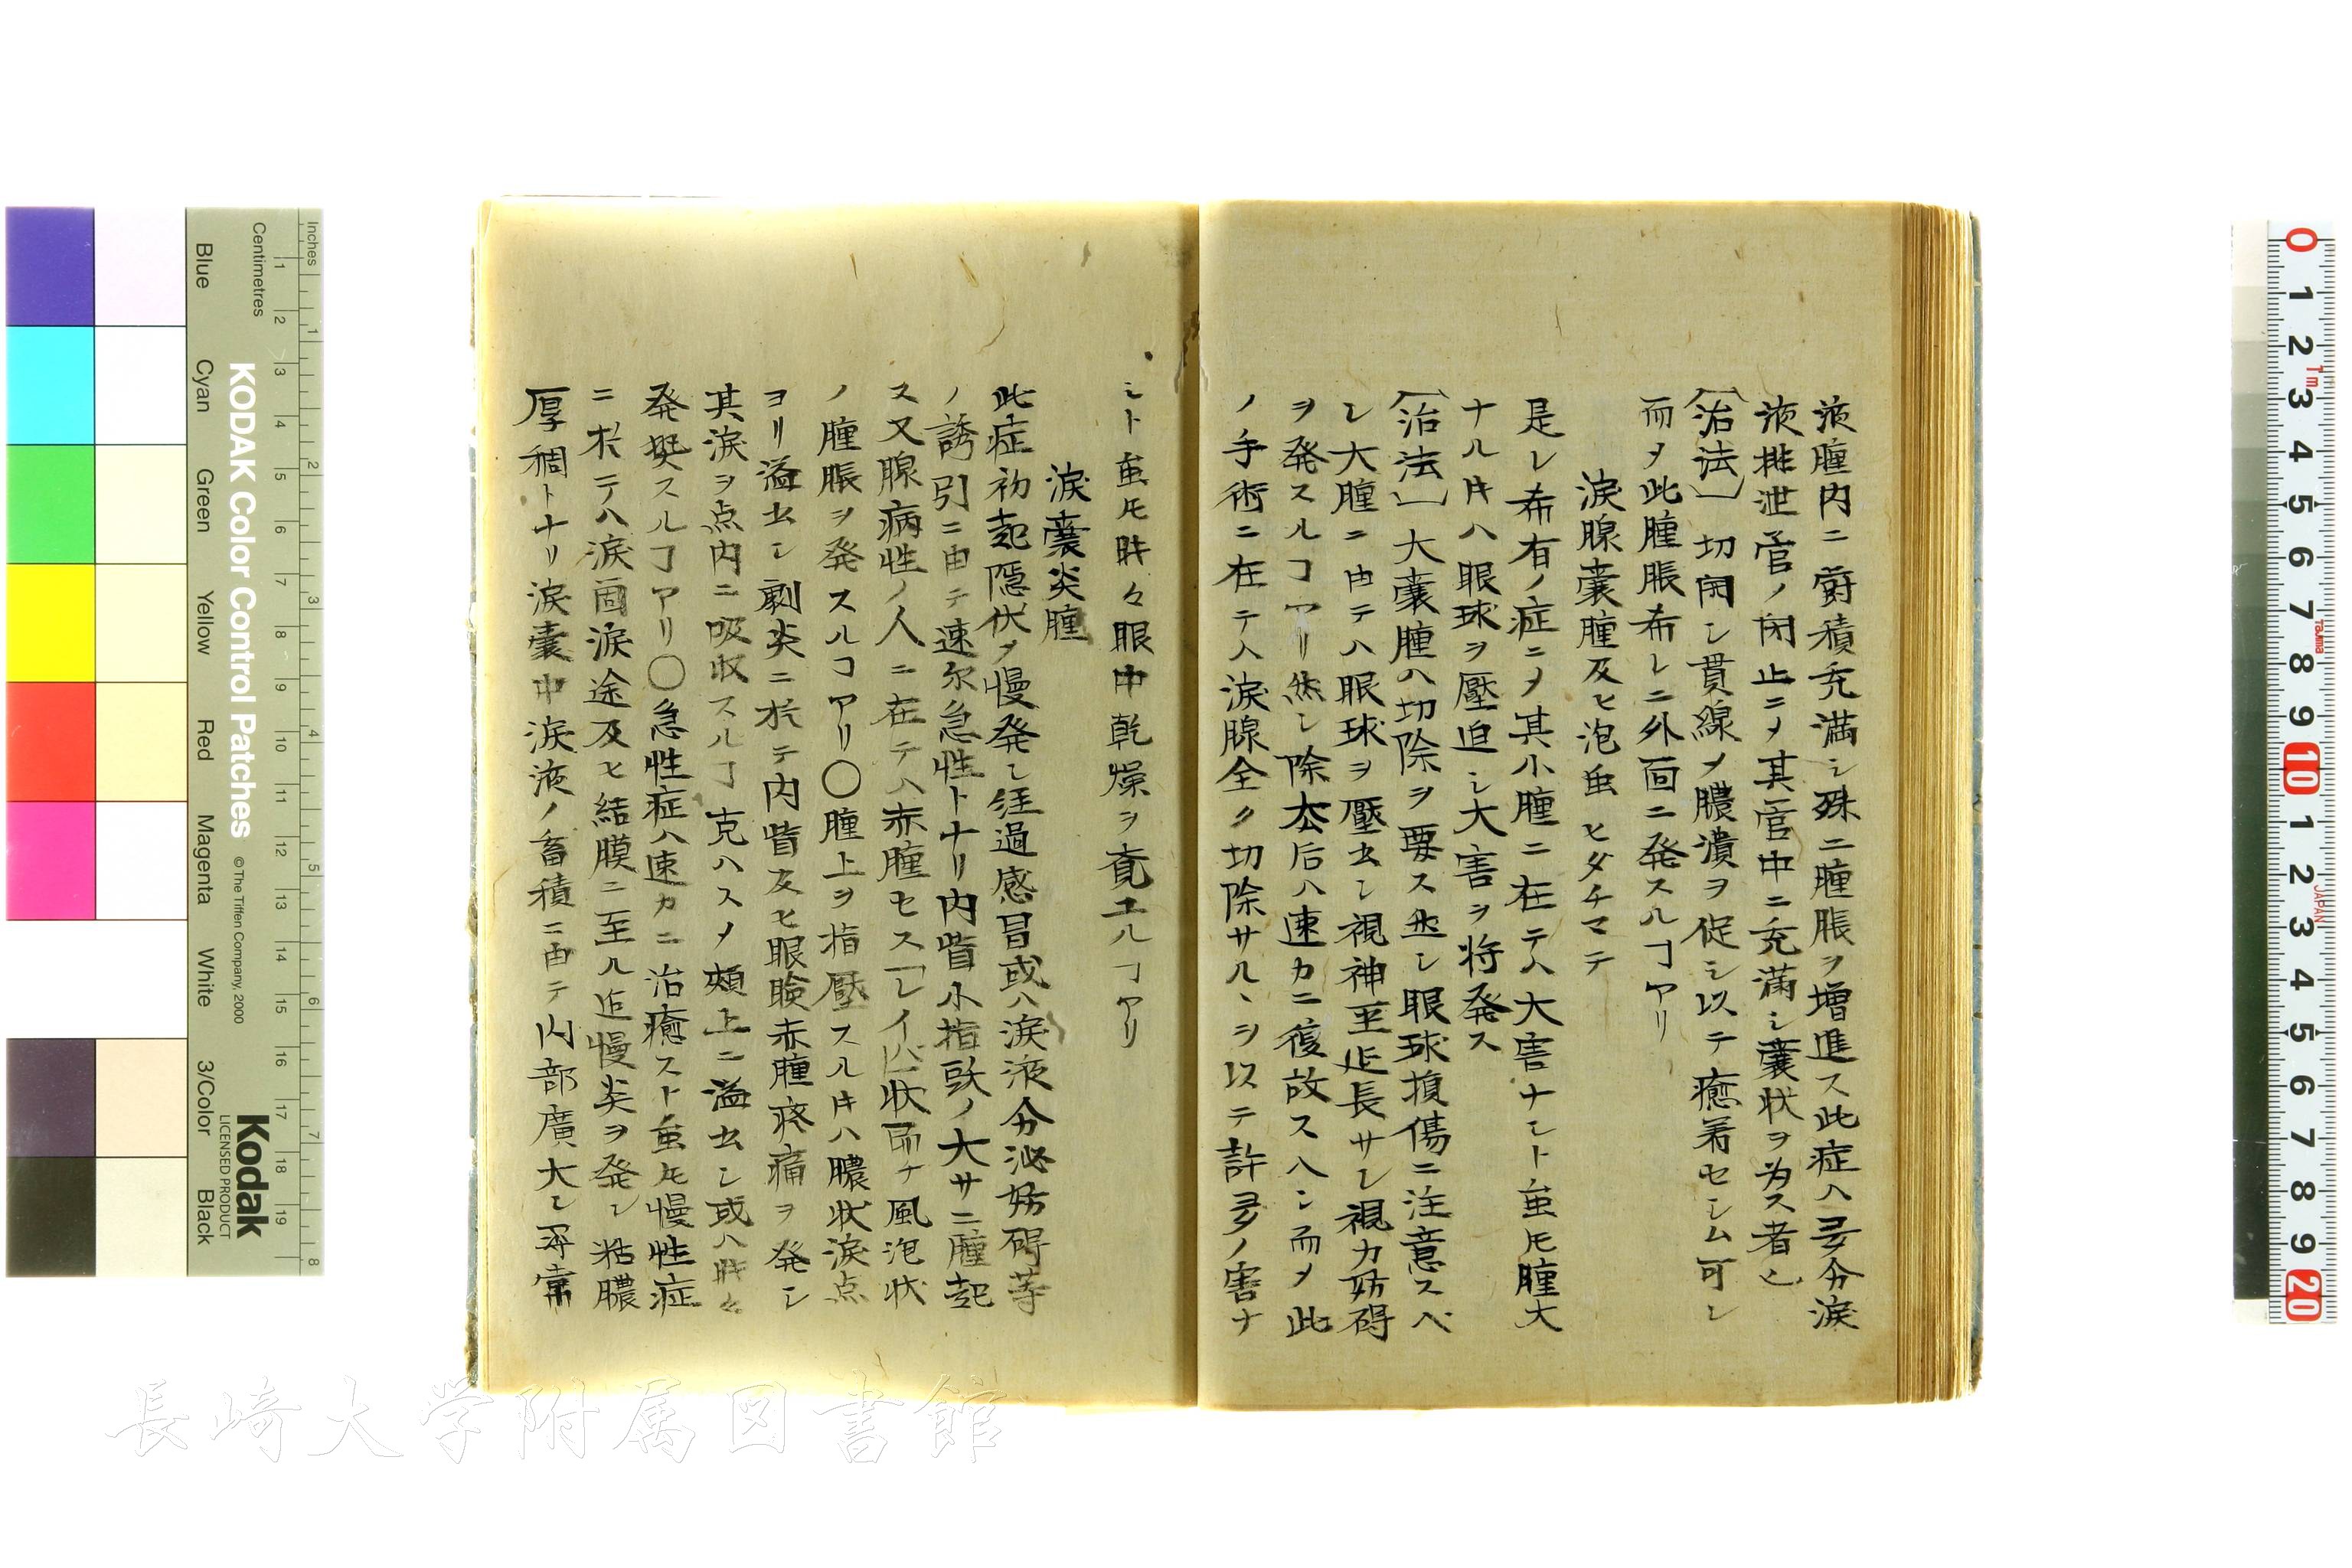 液腫内ニ欝積充満シ殊ニ腫脹ヲ増進ス此症ハ多分涙
液排泄管ノ閉止ニ〆其管中ニ充満シ嚢状ヲ為ス者也
〔治法〕切開シ貫線〆膿潰ヲ促シ以テ癒着セシム可シ
而〆此腫脹希レニ外面ニ発スルヿアリ
涙腺嚢腫及ヒ泡虫 ヒダチマテ
是レ希有ノ症ニ〆其小腫ニ在テハ大害ナシト虽𪜈腫大
ナル𪜈ハ眼球ヲ壓迫シ大害ヲ将発ス
〔治法〕大嚢腫ハ切除ヲ要ス然シ眼球損傷ニ注意スベ
シ大腫ニ由テハ眼球ヲ壓出シ視神至延長サレ視力妨碍
ヲ発スルヿアリ然シ除去后ハ速カニ復故スハシ而〆此
ノ手術ニ在テハ涙腺全ク切除サルヽヲ以テ許多ノ害ナ
シト虽𪜈時々眼中乾燥ヲ覚エルヿアリ
涙嚢炎腫
此症初起隠伏〆慢発シ経過感冒或ハ涙液分泌妨碍等
ノ誘引ニ由テ速尓急性トナリ内眥小指頭ノ大サニ腫起
ス又腺病性ノ人ニ在テハ赤腫セス 状而ナ風泡状
ノ腫脹ヲ発スルヿアリ〇腫上ヲ指壓スル𪜈ハ膿状涙点
ヨリ溢出シ劇炎ニ於テ内眥及ヒ眼瞼赤腫疼痛ヲ発シ
其涙ヲ点内ニ吸収スルヿ克ハス〆頬上ニ溢出シ或ハ時々
発熱スルヿアリ〇急性症ハ速カニ治癒スト虽𪜈慢性症
ニ於テハ涙 涙途及ヒ結膜ニ至ル迄慢炎ヲ発シ粘膿
厚稠トナリ涙嚢中涙液ノ畜積ニ由テ内部廣大シ平常
inches
Centimetres
KODAK Color Control Patches
© The Tiffen Company, 2000
Kodak
LICENSED PRODUCT
Blue
Cyan
Green
Yellow
Red
Magenta
White
3/Color
Black
長崎大学附属図書館